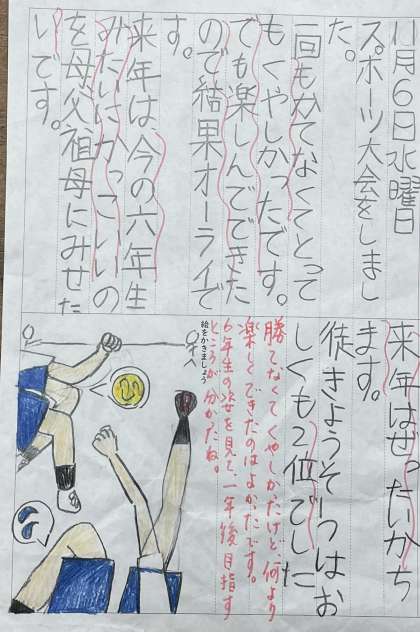 11月6日水曜日
スポーツ大会をしまし
た。
一回もかてなくてとって
もくやしかったです。
でも楽しんでできた
ので結果オーライで
す。
来年は今の六年生
みたいにかっこいいの
を母父祖母にみせた
いです。
来年はぜったいかち
ます。
徒きょうそ1つはお
しくも2位でした
勝てなくてくやしかったけど、何より
楽しくできたのはよかったです。
6年生の姿を見て、一年後目指す
ところが分かったね。
絵をかきましょう